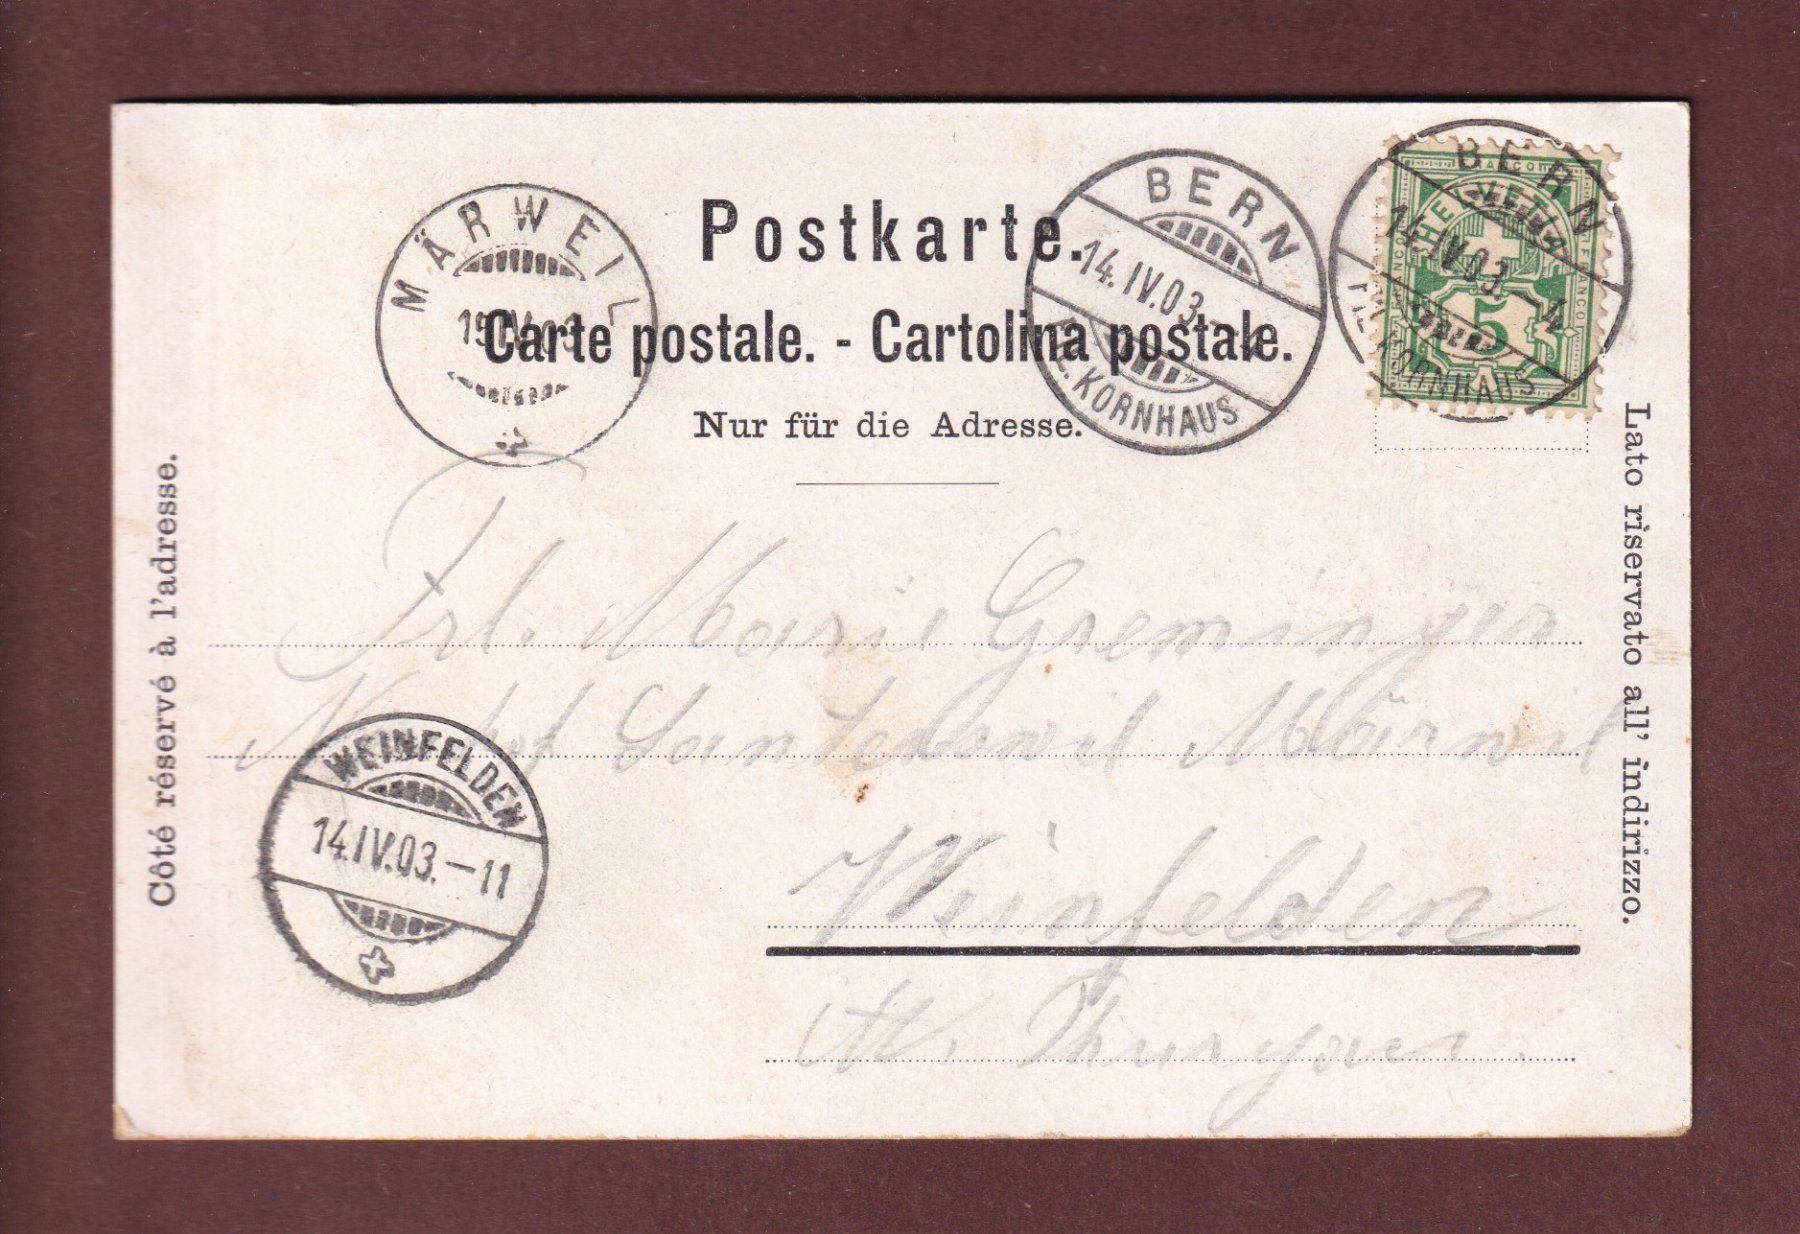 Postkarte.
Carte postale. - Cartolina postale.
Nur für die Adresse.
Côté réservé à l'adresse.
Lato riservato all' indirizzo.
MÄRWEIL
BERN
14.IV.03.
FIL.KORNHAUS
BERN
14.IV.03.-4
FIL.KORNHAUS
FRANCO
HELVETIA
FRANCO
FRANCO
5
Frl. Marie Greminger
Märwil
WEINFELDEN
14.IV.03.-11
Weinfelden
Kt. Thurgau.